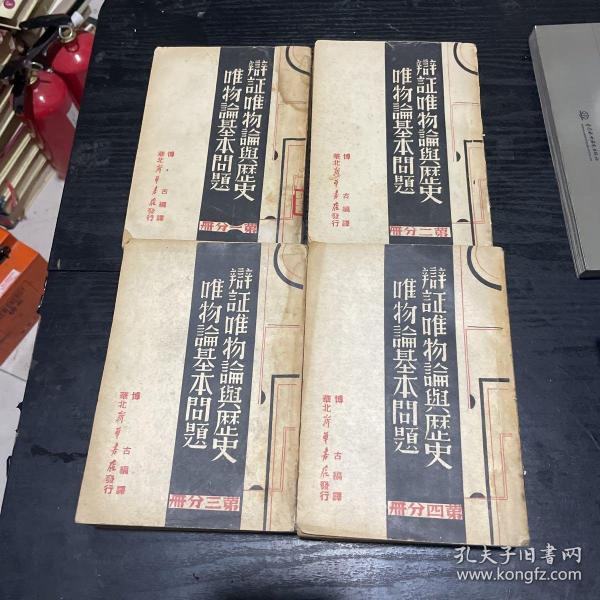 辯証唯物論與歷史
唯物論基本問題
博古編譯
華北新華書店發行
第一分冊
辯証唯物論與歷史
唯物論基本問題
博古編譯
華北新華書店發行
第二分冊
辯証唯物論與歷史
唯物論基本問題
博古編譯
華北新華書店發行
第三分冊
辯証唯物論與歷史
唯物論基本問題
博古編譯
華北新華書店發行
第四分冊
孔夫子旧书网
www.kongfz.com